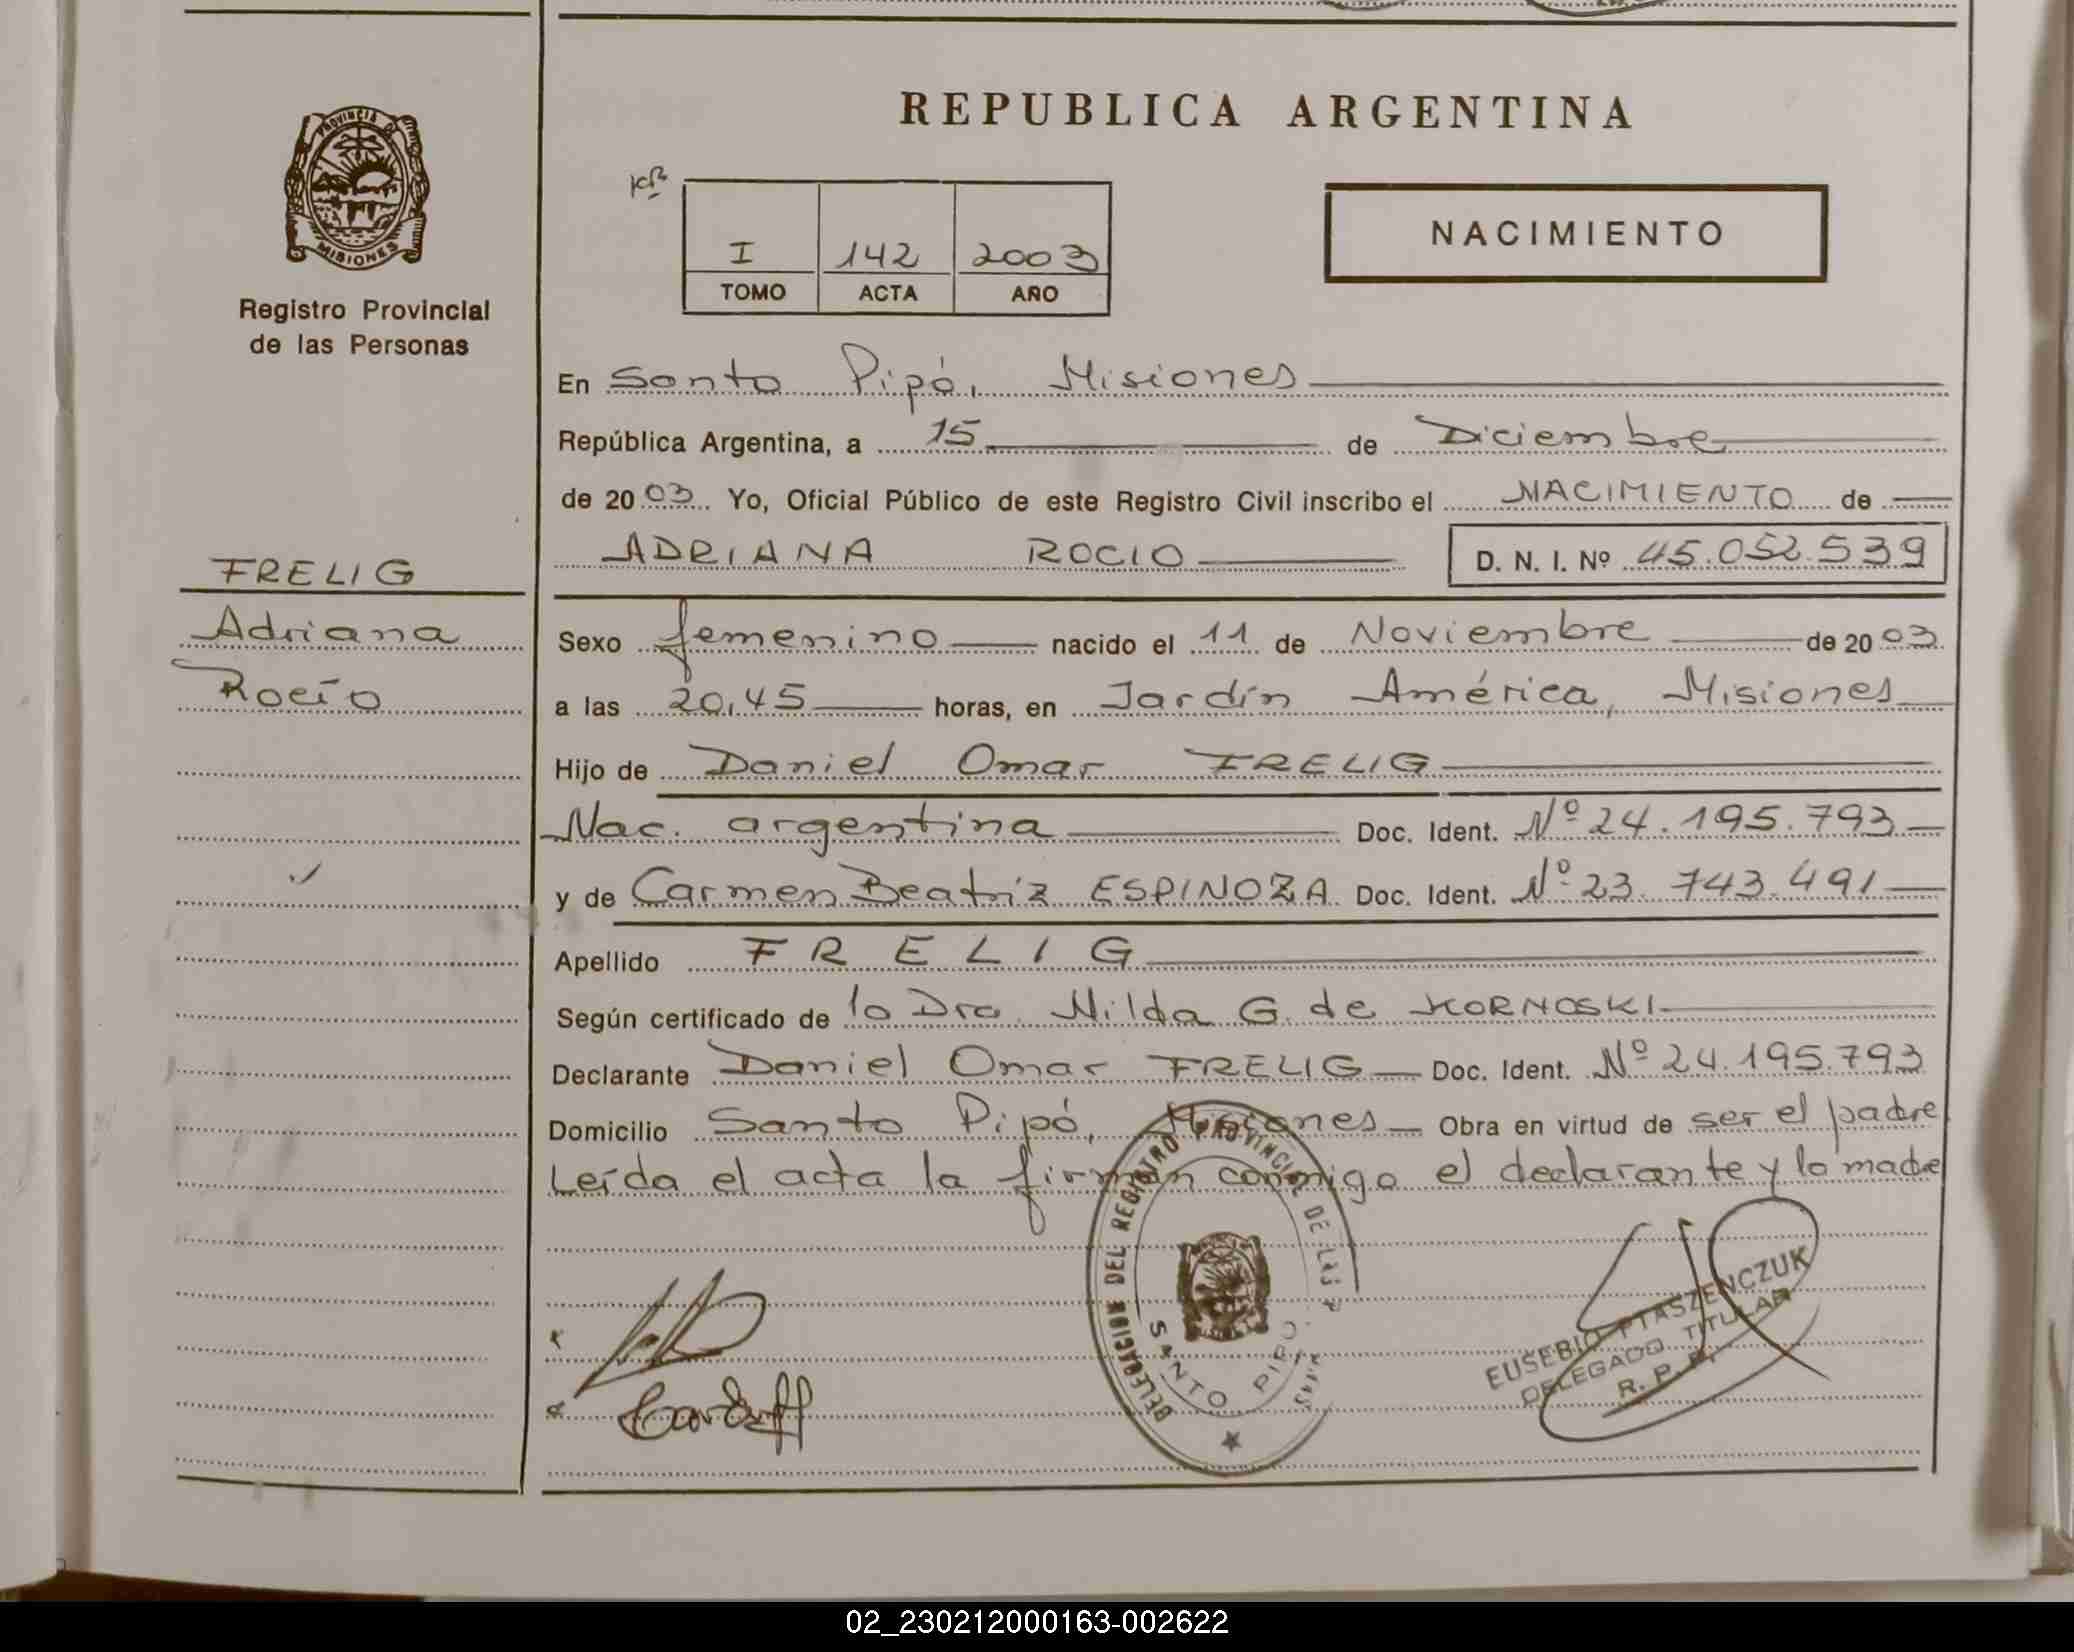 REPUBLICA ARGENTINA
PROVINCIA DE
MISIONES
Registro Provincial
de las Personas
I 142 2003
TOMO ACTA AÑO
NACIMIENTO
En Santo Pipó, Misiones
República Argentina, a 15 de Diciembre
de 2003. Yo, Oficial Público de este Registro Civil inscribo el NACIMIENTO de
ADRIANA ROCIO D. N. I. Nº 45.052.539
FRELIG
Adriana
Rocío
Sexo femenino nacido el 11 de Noviembre de 2003
a las 20,45 horas, en Jardín América, Misiones
Hijo de Daniel Omar FRELIG
Nac. argentina Doc. Ident. Nº 24.195.793
y de Carmen Beatriz ESPINOZA Doc. Ident. Nº 23.743.491
Apellido FRELIG
Según certificado de la Dra. Nilda G. de KORNOSKI
Declarante Daniel Omar FRELIG Doc. Ident. Nº 24.195.793
Domicilio Santo Pipó, Misiones Obra en virtud de ser el padre
Leída el acta la firman conmigo el declarante y la madre
DELEGACION DEL REGISTRO PROVINCIAL DE LAS
SANTO PIPO
EUSEBIO PTASZENCZUK
DELEGADO TITULAR
R. P. P.
02_230212000163-002622